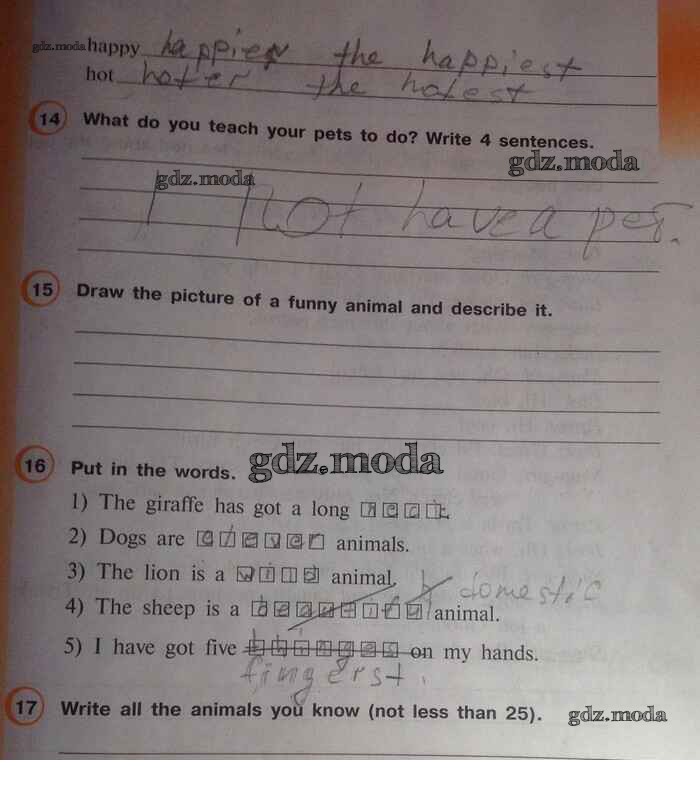 gdz.moda happy happier the happiest
hot hoter the hotest
14 What do you teach your pets to do? Write 4 sentences.
gdz.moda
gdz.moda
I not have a pet.
15 Draw the picture of a funny animal and describe it.
16 Put in the words. gdz.moda
1) The giraffe has got a long neck.
2) Dogs are clever animals.
3) The lion is a wild animal.
domestic
4) The sheep is a animal.
5) I have got five on my hands.
17 Write all the animals you know (not less than 25). gdz.moda